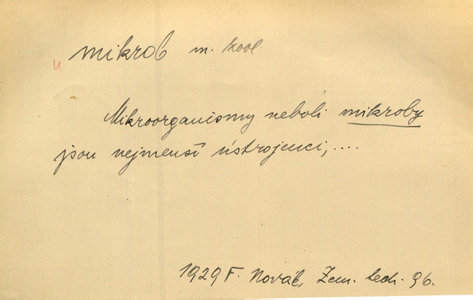 mikrob m. zool
u
Mikroorganismy neboli mikroby
jsou nejmenší ústrojenci,....
1929 F. Novák, Zem. 96.